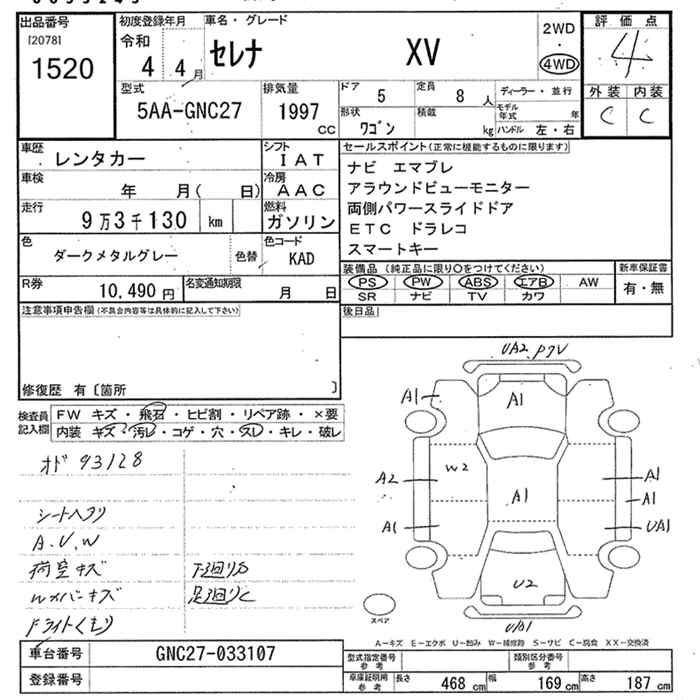 出品番号
[2078]
1520
初度登録年月
令和
4 4月
車名・グレード
セレナ XV
2WD
・
4WD
評価点
4
外装 内装
C C
型式
5AA-GNC27
排気量
1997
CC
ドア
5
定員
8 人
ディーラー・並行
モデル年式 年
形状
ワゴン
積載
kg
ハンドル 左・右
車歴
レンタカー
シフト
IAT
車検
年 月( 日)
冷房
AAC
走行
9万3千130 km
燃料
ガソリン
色
ダークメタルグレー
色替
色コード
KAD
R券
10,490 円
名変通知期限
月 日
セールスポイント(正常に機能するものに限ります)
ナビ エマブレ
アラウンドビューモニター
両側パワースライドドア
ETC ドラレコ
スマートキー
装備品(純正品に限り○をつけてください)
PS PW ABS エアB AW
SR ナビ TV カワ
新車保証書
有・無
後日品
注意事項申告欄(不具合内容等は具体的に記入して下さい)
修復歴 有〔箇所 〕
検査員記入欄
FW キズ・飛石・ヒビ割・リペア跡・×要
内装 キズ・汚レ・コゲ・穴・スレ・キレ・破レ
オド 93128
シートヘタリ
A.V.W
荷室キズ
Wメバーキズ
Fライトくもり
下回りS
足回りC
UA2
A1
A1
W2
A2
A1
A1
A1
A1
UA1
U2
U/A1
スペア
A-キズ E-エクボ U-凹み W-補修跡 S-サビ C-腐食 XX-交換済
車台番号
GNC27-033107
登録番号
型式指定番号
参考
類別区分番号
参考
車庫証明用
参考
長さ 468 cm
幅 169 cm
高さ 187 cm